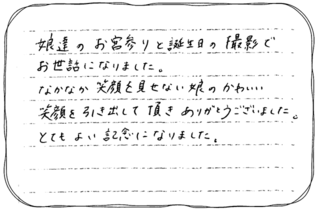 娘達のお宮参りと誕生日の撮影で
お世話になりました。
なかなか笑顔を見せない娘のかわいい
笑顔を引き出して頂きありがとうございました。
とてもよい記念になりました。